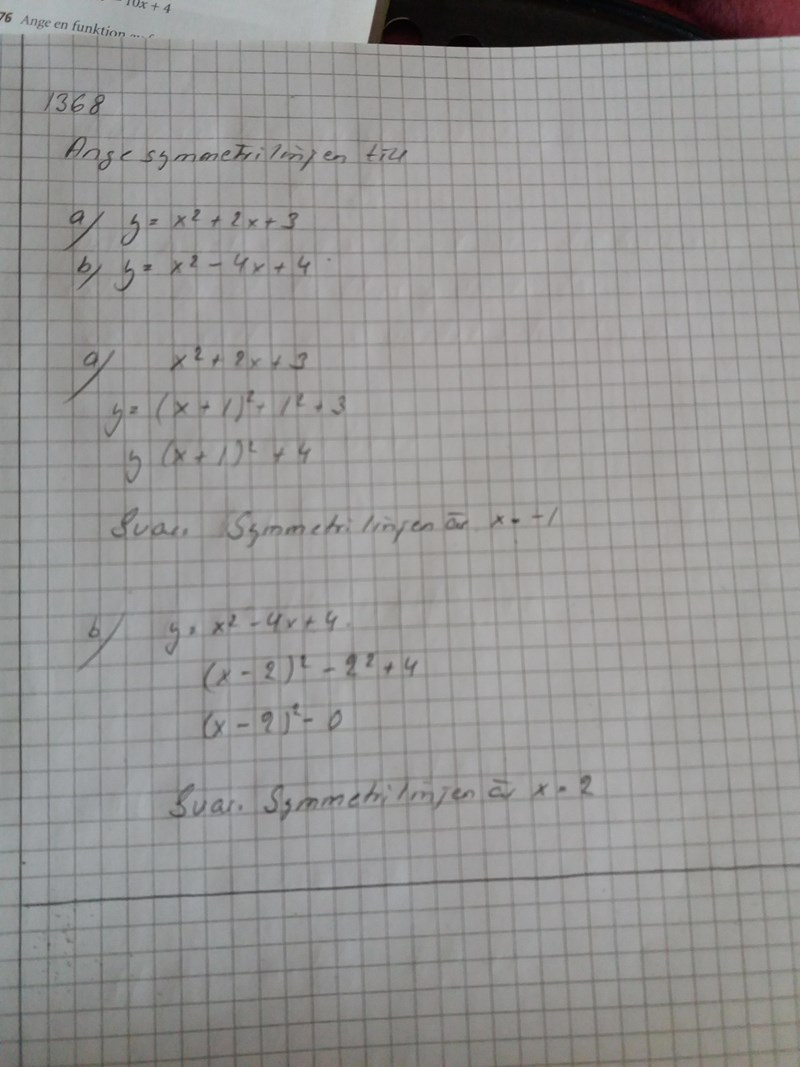 10x + 4
76 Ange en funktion
1368
Ange symmetrilinjen till
a) y = x² + 2x + 3
b) y = x² - 4x + 4
a) x² + 2x + 3
y = (x + 1)² + 1² + 3
y (x + 1)² + 4
Svar. Symmetrilinjen är x = -1
b) y = x² - 4x + 4
(x - 2)² - 2² + 4
(x - 2)² - 0
Svar. Symmetrilinjen är x = 2